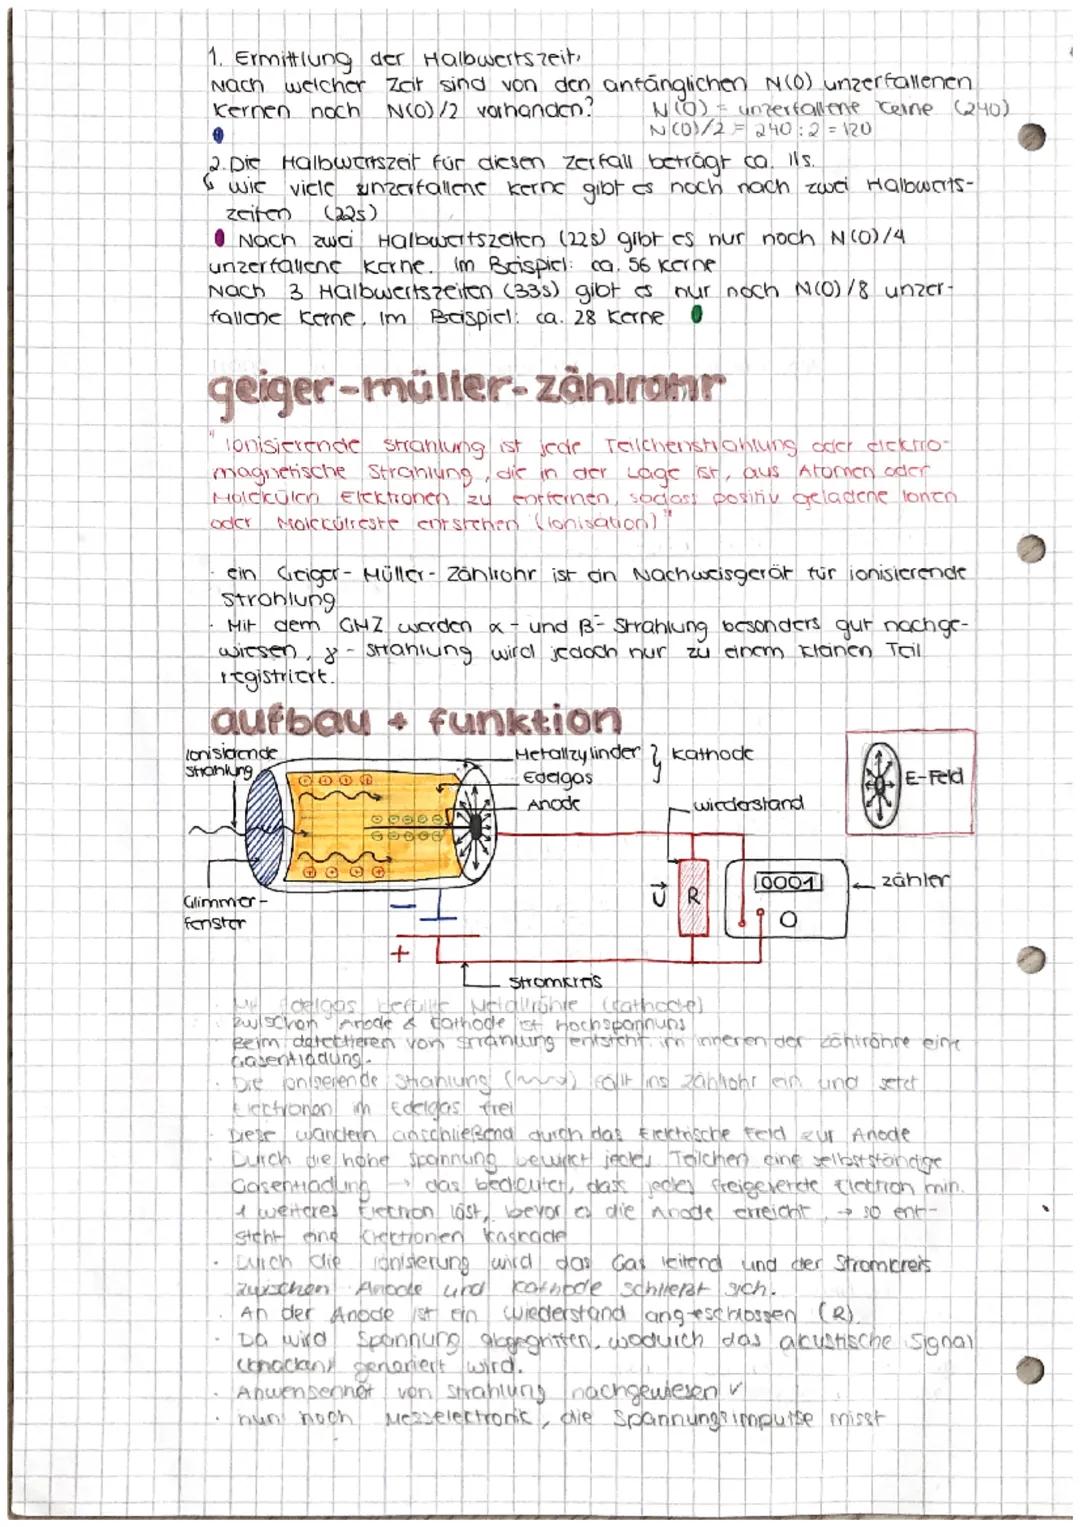 1. Ermittlung der Halbwertszeit,
Nach welcher Zeit sind von den anfänglichen N(0) unzerfallenen
Kernen noch N(0)/2 vorhanden? N(0) = unzerfallene Kerne (240)
N(0)/2 = 240:2 = 120
2. Die Halbwertszeit für diesen Zerfall beträgt ca. 11s.
wie viele unzerfallene Kerne gibt es noch nach zwei Halbwerts-
zeiten (22s)
Nach zwei Halbwertszeiten (22s) gibt es nur noch N(0)/4
unzerfallene Kerne. Im Beispiel: ca. 56 Kerne
Nach 3 Halbwertszeiten (33s) gibt es nur noch N(0)/8 unzer-
fallene Kerne. Im Beispiel: ca. 28 Kerne
geiger-müller-zählrohr
"Ionisierende Strahlung ist jede Teilchenstrahlung oder elektro-
magnetische Strahlung, die in der Lage ist, aus Atomen oder
Molekülen Elektronen zu entfernen, sodass positiv geladene Ionen
oder Molekülreste entstehen (Ionisation)"
· ein Geiger-Müller-Zählrohr ist ein Nachweisgerät für ionisierende
Strahlung
· Mit dem GMZ werden α- und β-Strahlung besonders gut nachge-
wiesen, γ-Strahlung wird jedoch nur zu einem kleinen Teil
registriert.
aufbau + funktion
Ionisierende
Strahlung
Metallzylinder } Kathode
Edelgas
Anode
wiederstand
E-Feld
U
R
0001
zähler
Glimmer-
fenster
−
+
Stromkreis
· Mit Edelgas befüllte Metallröhre (Cathode)
· zwischen Anode & Cathode ist hochspannuns
· Beim detectieren von Strahlung entsteht im inneren der zählröhre eine
Gasentladung.
· Die ioniserende Strahlung fällt ins zählrohr ein und setzt
Electronen im Edelgas frei
· Diese wandern anschließend durch das Elektrische Feld zur Anode
· Durch die hohe Spannung bewirkt jedes Teilchen eine selbstständige
Gasentladung → das bedeutet, dass jedes freigeserzte Electron min.
1 weiteres Electron löst, bevor es die Anode erreicht, → so ent-
steht eine Electronen Kaskade
· Durch die Ionisierung wird das Gas leitend und der Stromkreis
zwischen Anode und Kathode schließt sich.
· An der Anode ist ein Wiederstand angeschlossen (R).
· Da wird Spannung abgegriffen, wodurch das akustische Signal
(knacken) generiert wird.
· Anwensenheit von Strahlung nachgewiesen √
· nun noch Messelectronik, die Spannungsimpulse misst